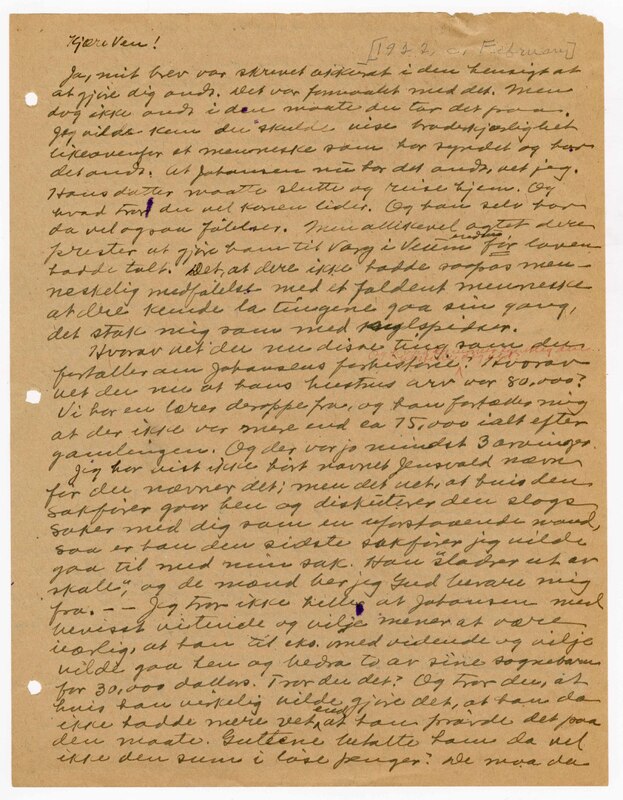 Kjære Ven!
[1922 2. Februar]
Ja, mit brev var skrevet akkurat i den hensigt at
at gjøre dig ondt. Det var formaalet med det. Men
dog ikke ondt i den maate du tar det paa.
Jeg vilde kun du skulde vise broderkjærlighet
likeovenfor et menneske som har syndet og har
det ondt. At Johansen nu har det ondt, vet jeg.
Hans datter maatte slutte og reise hjem. Og
hvad tror du vel konen lider. Og han selv har
da vel ogsaa følelser. Men allikevel agtet dere
prester at gjøre ham til Varg i Veum endnu før loven
hadde talt. Det, at dere ikke hadde saapas men-
neskelig medfølelse med et faldent menneske
at dere kunde la tingene gaa sin gang,
det stak mig som med syglspisser.
Hvorav vet du nu disse ting som du
fortæller om Johansens forhistorie? Hvorav
vet du nu at hans hustrus arv var 80,000?
Vi har en lærer deroppe fra, og han fortæller mig
at der ikke var mere end ca 75,000 ialt efter
gamlingen. Og der var jo mindst 3 arvinger.
Jeg har vist ikke hørt navnet Jensvald nævnt
før du nævner det; men det vet, at hvis den
sakfører gaar hen og diskuterer den slags
saker med dig som en uforstaaende mand,
saa er han den sidste sakfører jeg vilde
gaa til med min sak. Han "sladrer ut av
skole", og de mænd ber jeg Gud bevare mig
fra. -- Jeg tror ikke heller at Johansen med
bevisst vitende og vilje mener at være
uærlig, at han til eks. med vidende og vilje
vilde gaa hen og bedra to av sine sognebarn
for 30,000 dollars. Tror du det? Og tror du, at
hvis han virkelig vilde gjøre det, at han da
ikke hadde mere vet, at han prøvde det paa
den maate. Guttene betalte ham da vel
ikke den sum i løse penger? De maa da